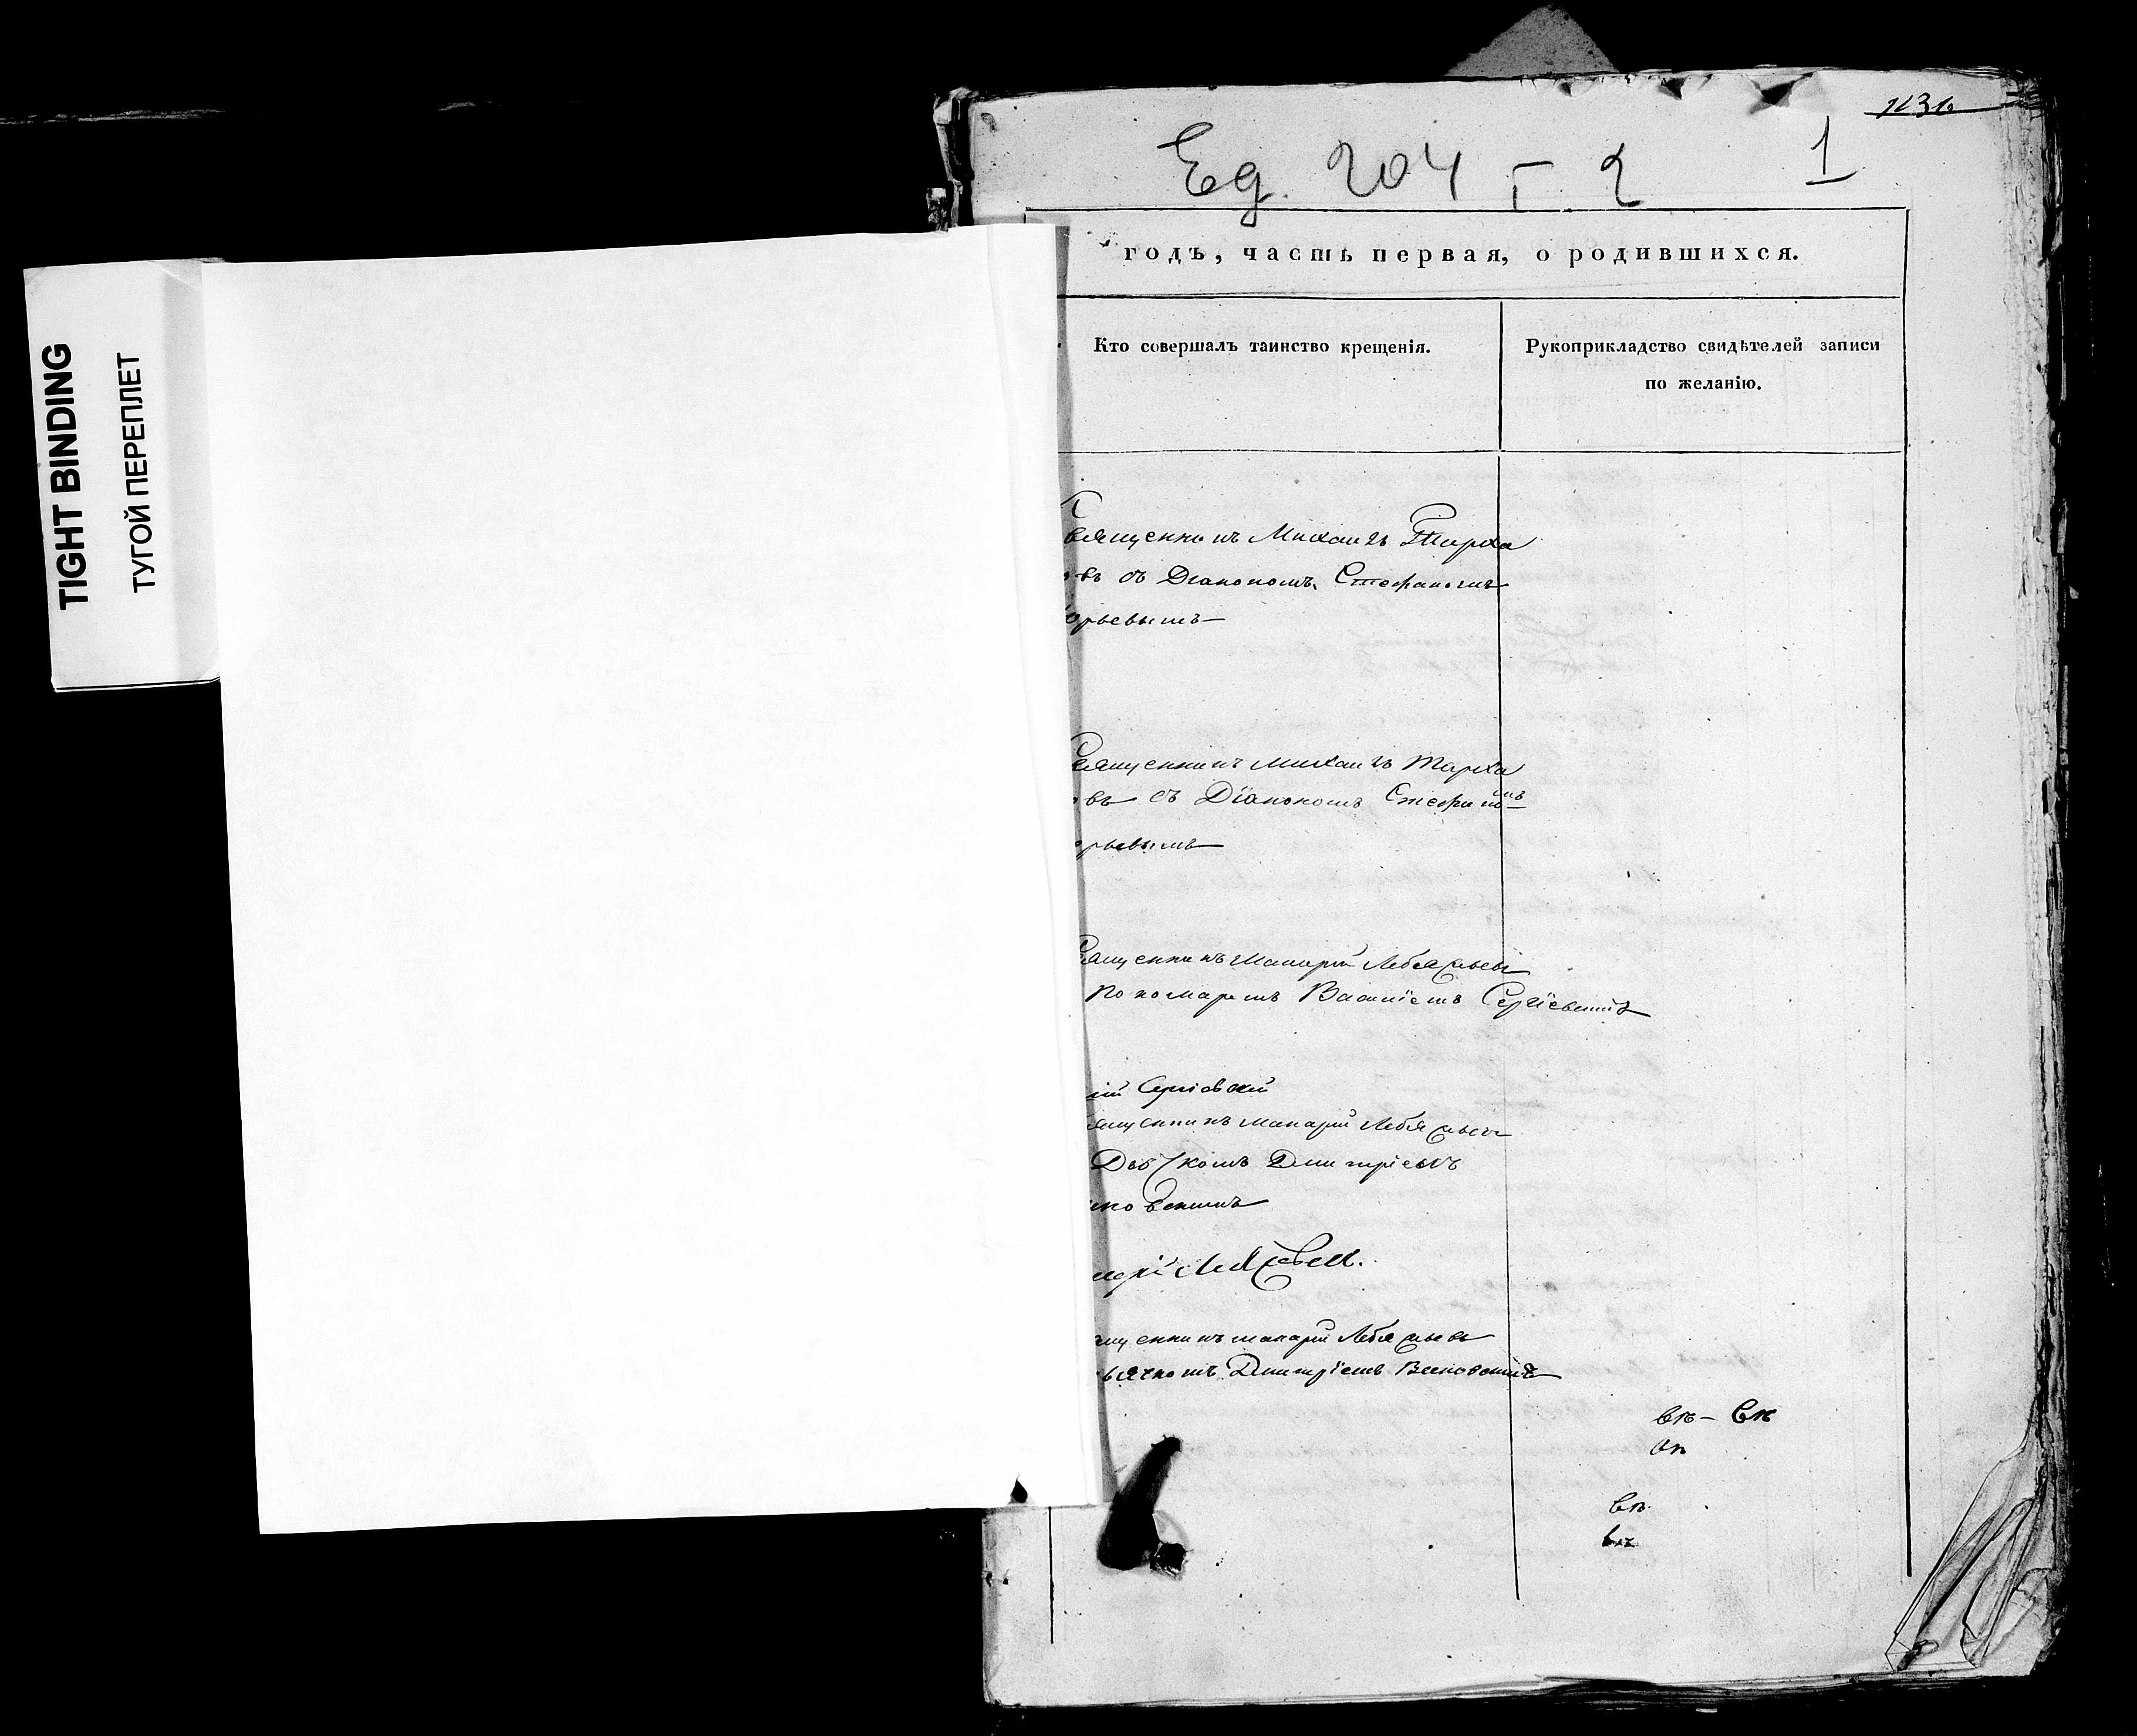 TIGHT BINDING
ТУГОЙ ПЕРЕПЛЕТ
1136
Ед. 204 г. 2
1
годъ, часть первая, о родившихся.
Кто совершалъ таинство крещенія.
Рукоприкладство свидѣтелей записи
по желанію.
Священникъ Михаилъ Тарха
овъ съ Діакономъ Стефаномъ
Юрьевымъ
Священникъ Михаилъ Тарха
овъ съ Діакономъ Стефаномъ
орьевымъ
Священникъ Макарій Лебяжьевъ
Пономаремъ Василіемъ Сергіевскимъ
ій Сергіовскій
ященникъ Макарій Лебяжьевъ
Дьячкомъ Дмитріемъ
ащенникъ Макарій Лебяжьевъ
ьячкомъ Дмитріемъ